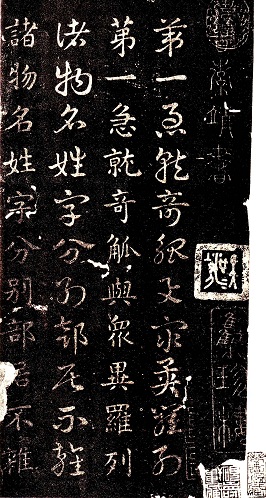 索靖書
第一急就奇觚與眾異羅列
第一急就奇觚與眾異羅列
諸物名姓字分别部居不雜
諸物名姓字分别部居不雜